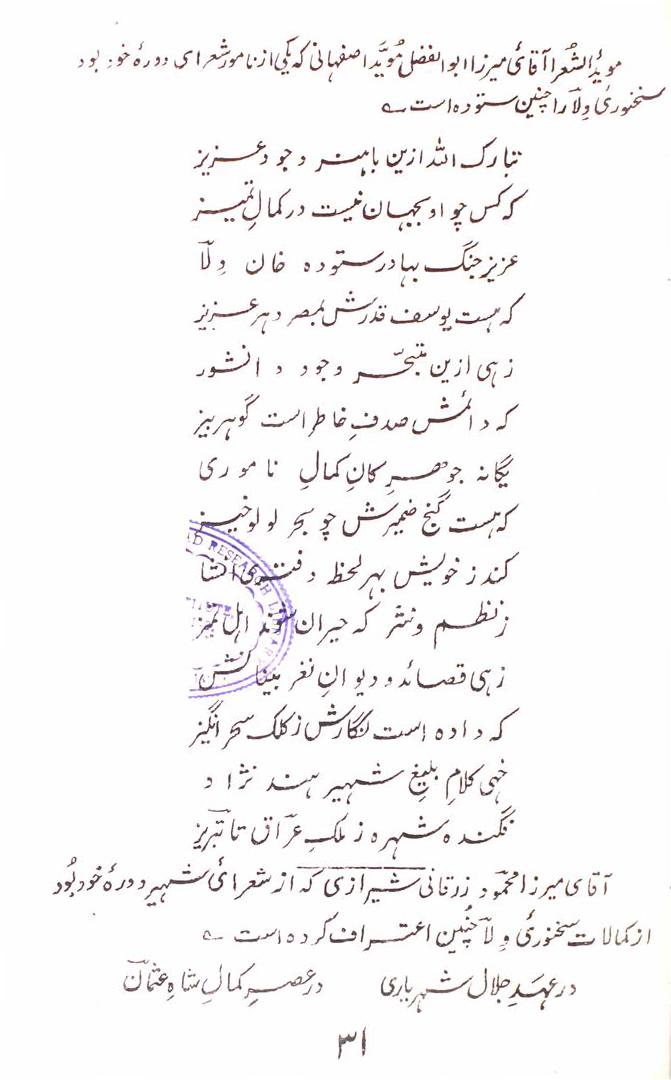 مویدُ الشُعرا آقائی میرزا ابوالفضل مُویَّد اصفهانی که یکی از نامور شعرای دورۂ خود بود
سخنوریٔ وِلّا را چنین ستوده است ے
تبارک اللہ ازین باهنر وجودِ عزیز
که کس چو او بجهان نیست در کمالِ تمیز
عزیز جنگ بهادر ستوده خان وِلّا
که هست یوسف قدرش بمصر دهر عزیز
زهی ازین متبحّر وجود دانشور
که دانشش صدفِ خاطر است گوهر بیز
یگانه جوهرِ کانِ کمالِ ناموری
که هست گنج ضمیرش چو بحر لولو خیز
کند ز خویش بهر لحظه دفتری انشا
ز نظم و نثر که حیران شوند اهل تمیز
زهی قصائد و دیوانِ نغز بینا کنش
که داده است نگارش ز کلک سحر انگیز
خهی کلامِ بلیغِ شهیر هند نژاد
فگنده شهره ز ملکِ عراق تا تبریز
آقای میرزا محمّود زرقانی شیرازی که از شعرائی شهیر دورۂ خود بُود
از کمالات سخنوریٔ وِلّا چُنین اعتراف کرده است ے
در عهدِ جلال شهریاری در عصرِ کمالِ شاهِ عثمان
۳۱
RESEARCH